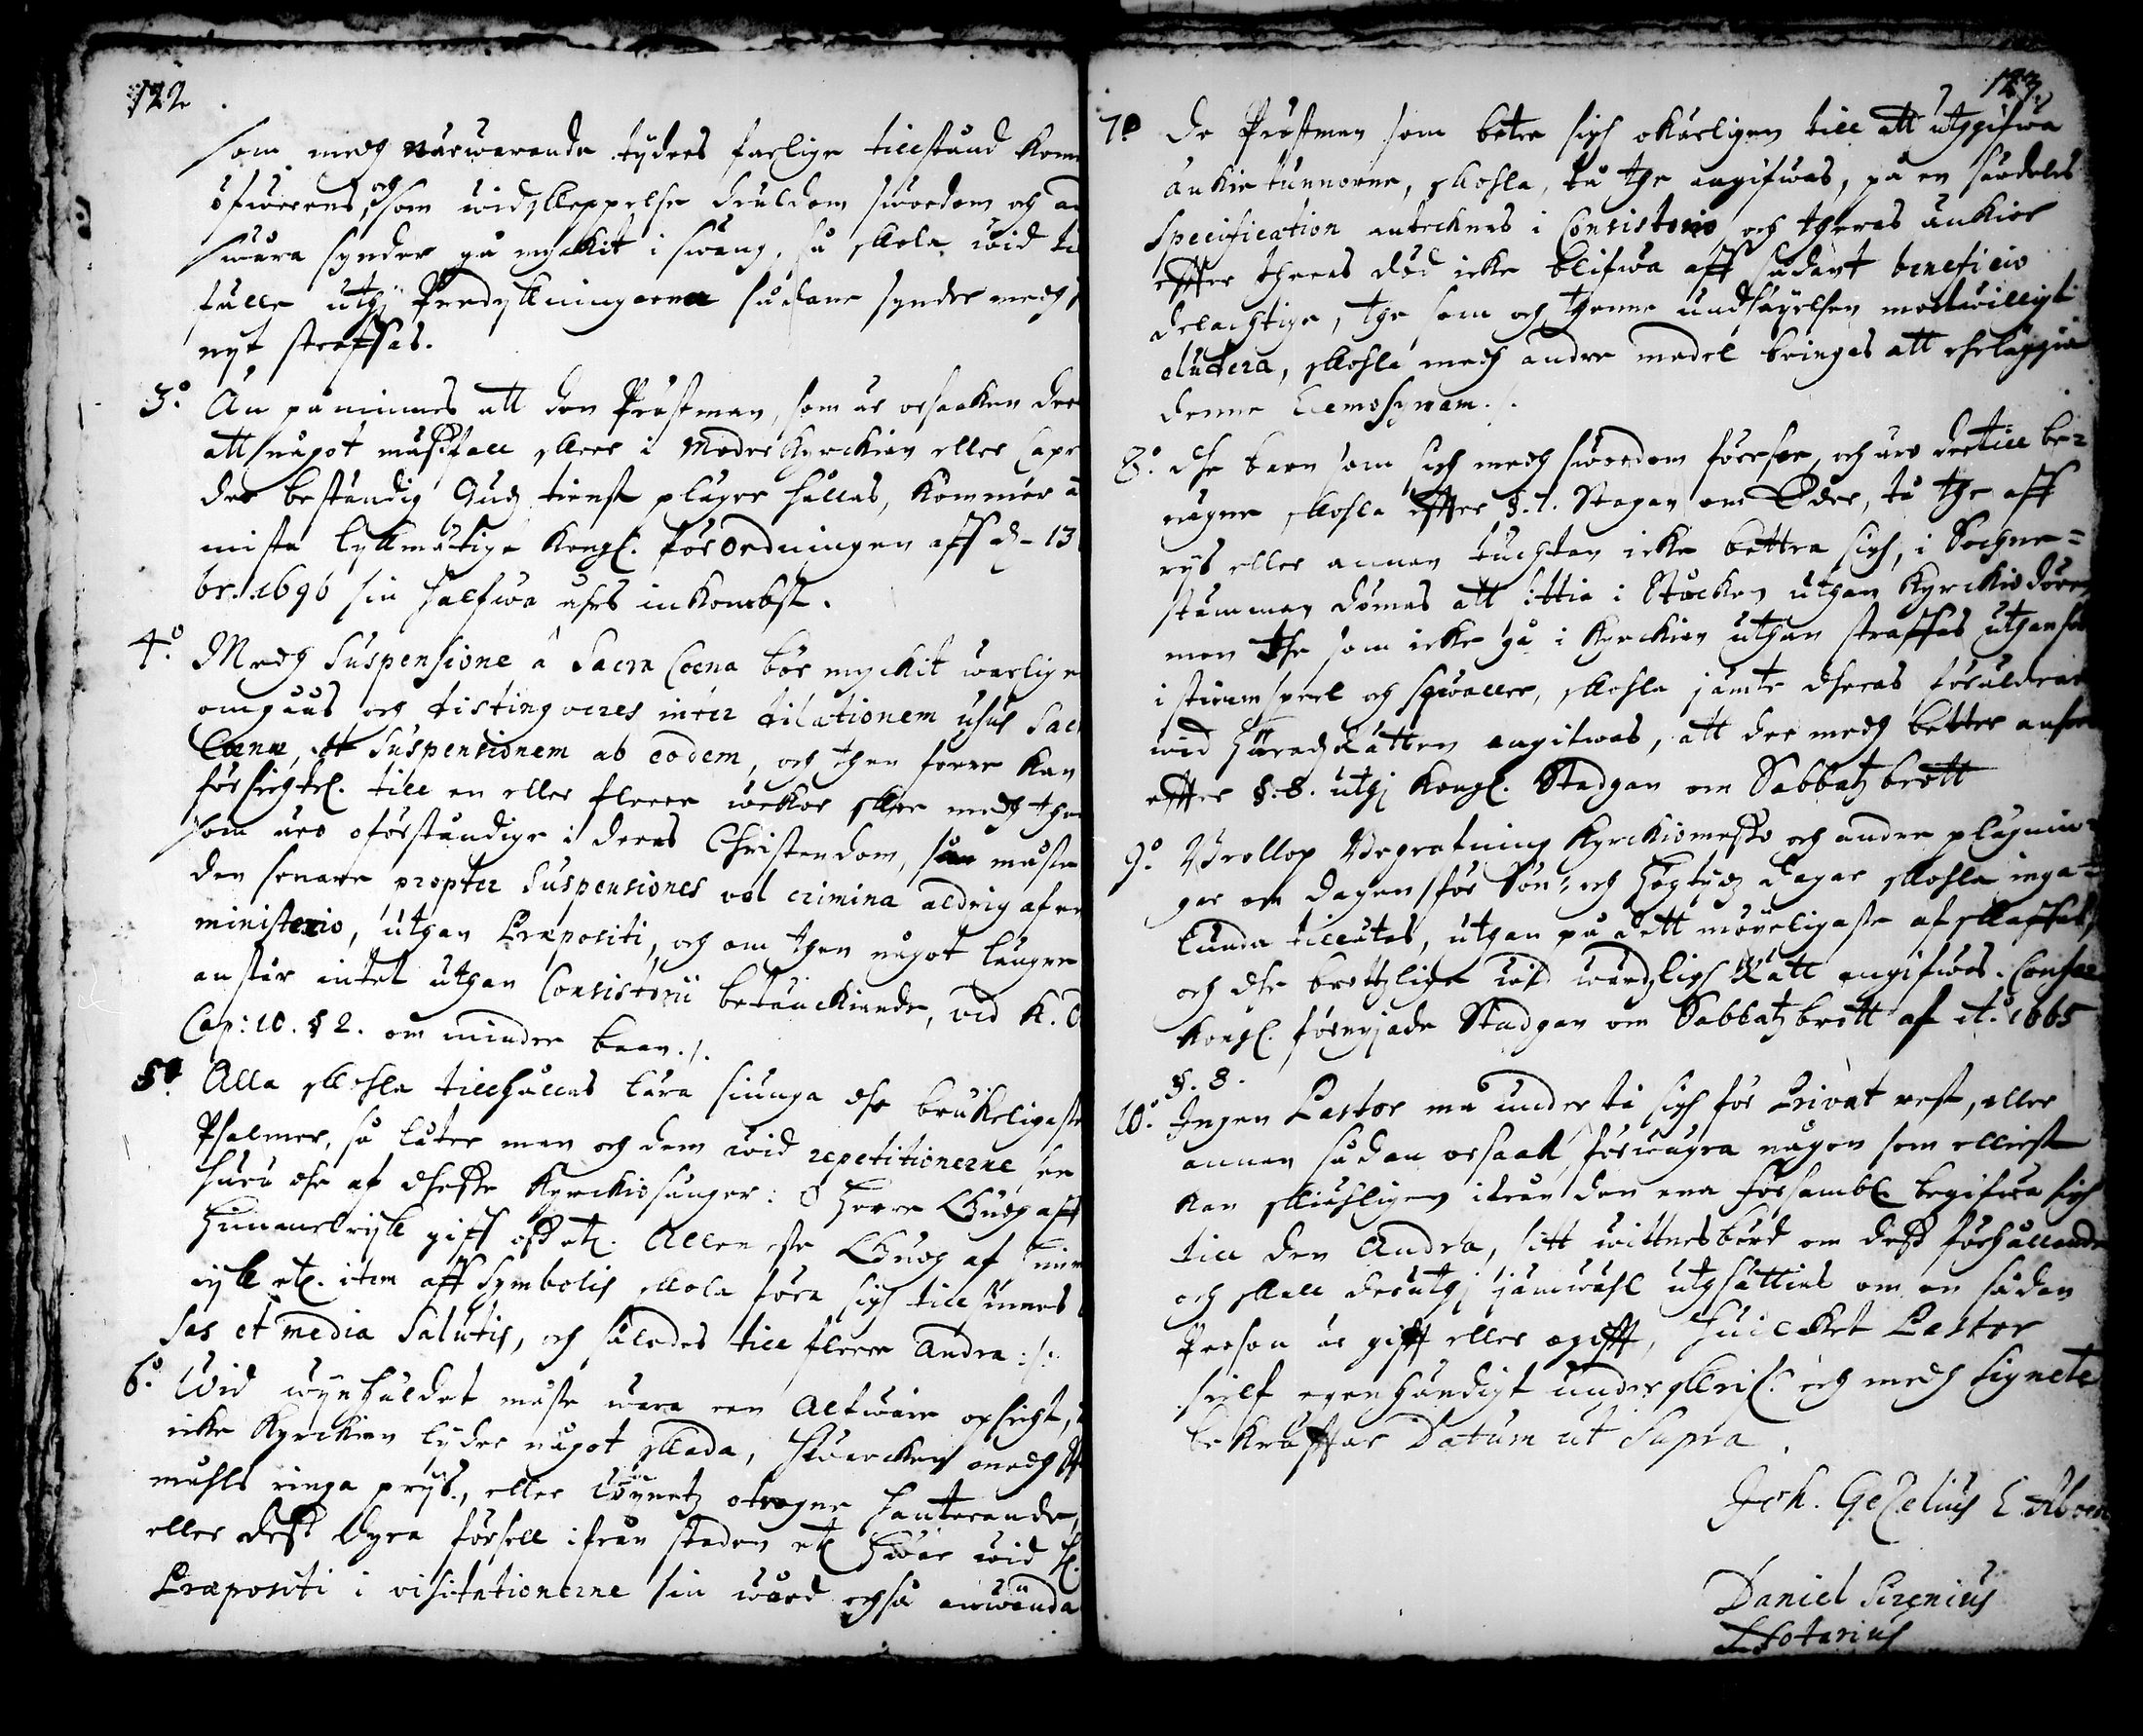 122
som medh närwarande tyders farlige tillstånd kom
öfwerens, och som widskeppelse diuldom swordom och an
swåra synder gå myckit i swang, så skola wid til
fälle uthj Predykningarna sådane synder medh
nyt straffas.
3:o Än påminnes att den Prästman, som är orsaken der
att något mässfall skeer i Moderkyrckian eller Cape
der beständig Gudz tienst plägar hållas, kommer a
mista lykmätige Kongl. förordningen aff d- 13
br. 1696 sin halfwa åhrs inkombst.
4:o Medh Suspensione â Sacra Coena bör myckit warlige
omgåås och distingveres inter dilationem usus Sac
Coenæ, et Suspensionem ab eodem, och then förre kan
försichtel. till en eller flere wekor skee medh the
som äro oförståndige i deras Christendom, men måste
den senare propter Suspensiones vel crimina aldrig af
ministerio, uthan Præpositi, och om then något längre
anstår intet uthan Consistorii betänckiande, vid K. O
Cap: 10. § 2. om mindre bann ./.
5:o Alla skohla tillhållas lära siunga dhe brukeligaste
Psalmer, så låter man och dem wid repetitionerne se
huru dhe af desse Kyrckiosånger: O Herre Gudh aff
Himmelrijk giff oss etc. Alleneste Gudh af him
rijk etc. item aff Symbolis skola föra sigh till sinnes
sas et media Salutis, och således till flere Andra :/:
6:o Wid wijnhåldet måste wara een Alfware opsicht,
icke Kyrckian lyder något skada, hwarcken medh
måhls ringa prijs., eller Wijnetz otrogne hanterande,
eller dess dyra försell ifrån staden etc hwar wid H.
Præpositi i visitationerne sin wård också anwända
123
7:o De Prästmen som betee sigh okärligen till att uthgifwa
änkie tunnorne, skohla, då the angifwas, på en särdeles
Specification antecknas i Consistorio och theras änkior
effter theras död icke blifwa aff sådant beneficio
delachtige, the som och thenne undsäyelsen motwilligt
eludera, skohla medh andre medel bringas att erläggia
denne Elemosynam ./.
8:o Dhe barn som sigh medh swordom förse, och äro dertill be=
nägne skohla effter §. 7. Stagan om Eder, då the aff
rijs eller annan tuchtan icke bettra sigh, i Sochne=
stämman dömas att sittia i Stocken uthan Kyrckiodören,
men the som icke gå i Kyrckian uthan straffas uthanför
i stoiem speel och sqwaller, skohla jämte dheras föräldrar
wid Häradz Rätten angifwas, att der medh better anses
effter §. 8. uthj Kongl. Stadgan om Sabbatz brott
9:o Bröllop Begrafning Kyrckiomesso och andra plägnin=
gar om dagen för Sön= och Högtijdz Dagar skohla inga=
lunda tillåtas, uthan på dett möyeligaste afskaffas,
och dhe brottzlige wid wärdzligh Rätt angifwas. Confer
Kongl. förnyjade Stadgan om Sabbatzbrott af A:o 1665
§. 8.
10:o Ingen Pastor må understå sigh för Privat rest, eller
annan sådan orsaak, förwägra någon som ellierst
kan skiähligen ifrån den ena försambl. begifwa sigh
till den Andra, sitt wittnesbörd om dess förhållande
och skall deruthj jämwähl uthsätties om en sådan
Person är gifft eller ogifft, huilcket Pastor
sielf egenhändigt underskrif. och medh Signete
bekräfftar Datum ut Supra.
Joh. Gezelius E. Aboen
Daniel Sirenius
Notarius